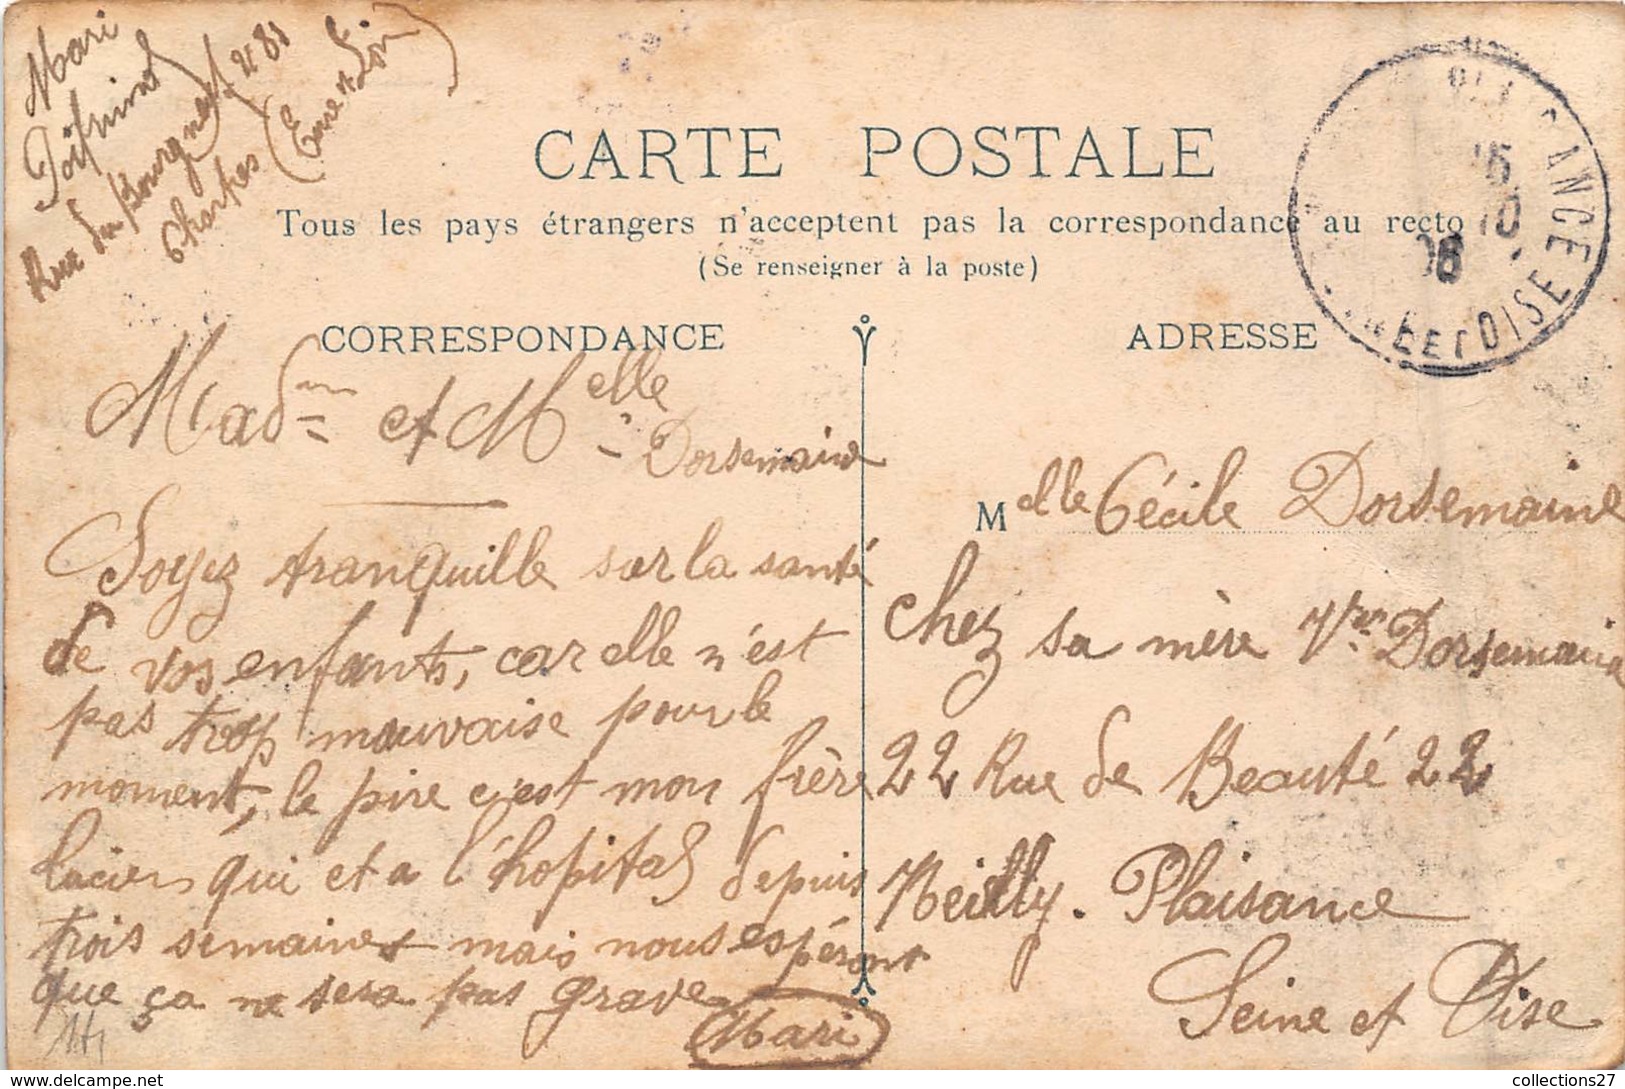 Mari
Rue du Bourgneuf n° 81
Chartres (Eure et Loir)
CARTE POSTALE
Tous les pays étrangers n'acceptent pas la correspondance au recto
(Se renseigner à la poste)
CORRESPONDANCE
ADRESSE
PLAISANCE
15
10
06
SEINE ET OISE
Madme et Melle
Dorsemaine
Soyez tranquille sur la santé
de vos enfants, car elle n'est
pas trop mauvaise pour le
moment, le pire c'est mon frère
Lucien qui et a l'hopital depuis
trois semaines mais nous espéront
que ça ne sera pas grave
Mari
Melle Cécile Dorsemaine
chez sa mère Vve Dorsemaine
22 Rue de Beauté 22
Neilly-Plaisance
Seine et Oise
collections27